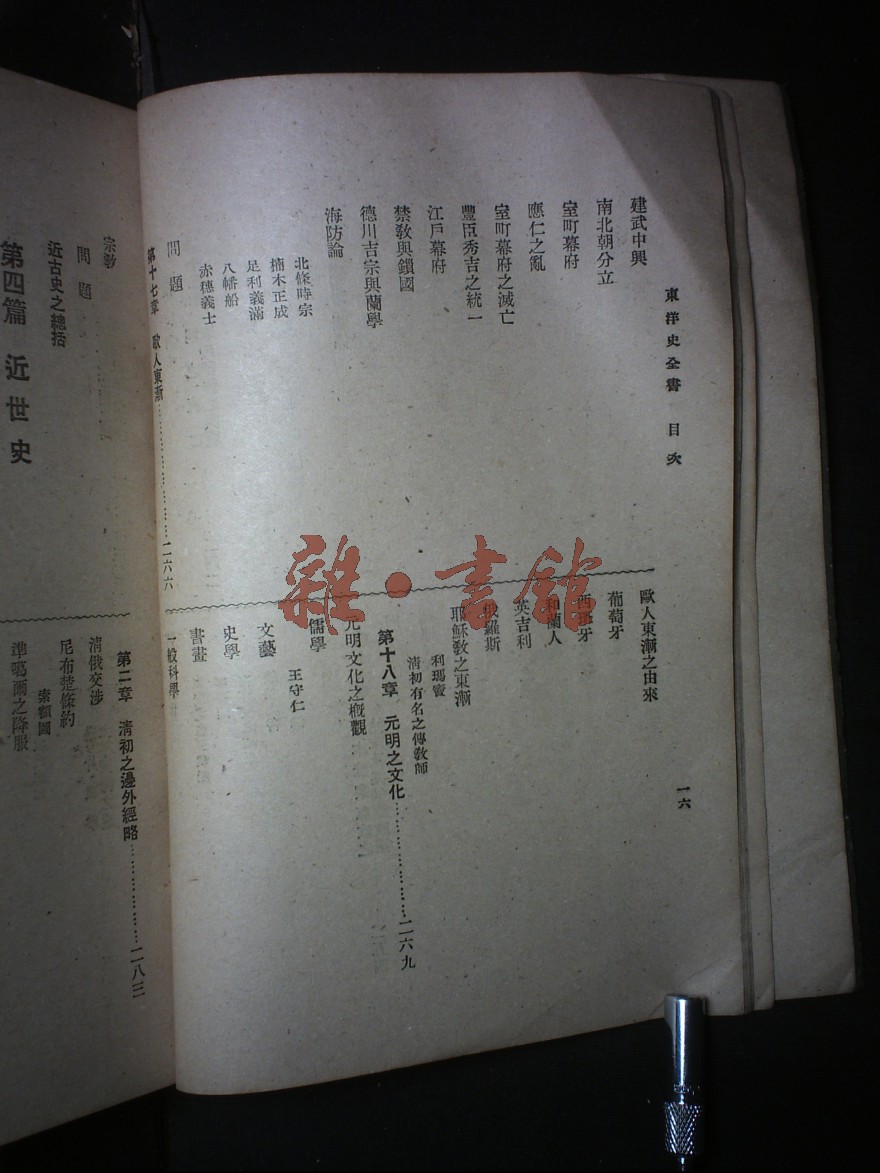 東洋史全書　目次
一六
建武中興
南北朝分立
室町幕府
應仁之亂
室町幕府之滅亡
豐臣秀吉之統一
江戶幕府
禁敎與鎖國
德川吉宗與蘭學
海防論
北條時宗
楠木正成
足利義滿
八幡船
赤穗義士
問題
第十七章　歐人東漸……………………二六六
歐人東漸之由來
葡萄牙
西班牙
和蘭人
英吉利
俄羅斯
耶穌敎之東漸
利瑪竇
淸初有名之傳敎師
第十八章　元明之文化……………………二六九
元明文化之槪觀
儒學
王守仁
文藝
史學
書畫
一般科學
宗敎
問題
近古史之總括
第四篇　近世史
第二章　淸初之邊外經略……………………二八三
淸俄交涉
尼布楚條約
索額圖
準噶爾之降服
雜·書館